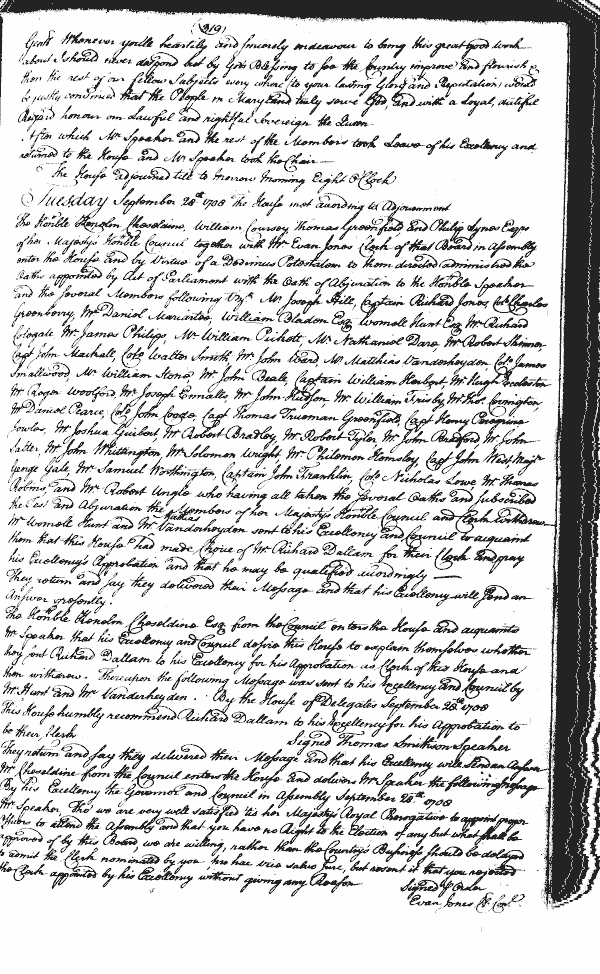 (319)
Great Whenever youlle heartily and sincerely endeavour to bring this great good work
about I should never despond but by Gods Blessing to see the Country improve and flourish
than the rest of our fellow Subjects every where to your lasting Glory and Reputation
be justly confirmed that the People in Maryland truly serve God and with a Loyal, dutiful
Regard honour our Lawful and rightful Sovereign the Queen
After which Mr Speaker and the rest of the Members took Leave of his Excellency and
returned to the House and Mr Speaker took the Chair
The House adjourned till to morrow morning Eight o Clock
Tuesday September 28th 1708 The House met according to Adjournment
The Honble Kenelm Cheseldine, William Coursey Thomas Greenfield, and Philip Lynes Esqrs
of her Majestys Honble Council together with Mr Evan Jones Clerk of that Board in Assembly
enter the House and by Virtue of a Dedimus Potestatem to them directed administred the
Oaths appointed by Act of Parliament with the Oath of Abjuration to the Honble Speaker
and the several Members following Vizt. Mr Joseph Hill, Captain Richard Jones, Colo Charles
Greenberry, Mr Daniel Mariartee, William Bladen Esq Wornell Hunt Esq Mr Richard
Colegate Mr James Philips, Mr William Pickett, Mr Nathaniel Dare Mr Robert Skinner,
Capt John Mackall, Colo Walter Smith Mr John Ward, Mr Matthias Vanderheyden Colo James
Smallwood Mr William Stone Mr John Beale, Captain William Herbert, Mr Hugh
Mr Roger Woolford Mr Joseph Ennalls, Mr John Hudson Mr William Frisby Mr Thos. Covington,
Mr Daniel Pearce, Colo John Coode, Capt Thomas Trueman Greenfield, Capt Henry Peregrine
Jowles, Mr Joshua Guibert, Mr Robert Bradley, Mr Robert Tyler Mr John Bradford Mr John
Salter, Mr John Whittington, Mr Solomon Wright Mr Philemon Hemsley, Capt John West, Majr
George Gale, Mr Samuel Worthington, Captain John Franklin, Colo Nicholas Lowe Mr Thomas
Robins, and Mr Robert Ungle who having all taken the several Oaths and subscribed
the Test and Abjuration the Members of her Majestys Honble Council and Clerk Withdraw
Mr Wornell Hunt and Mr Matthias Vanderheyden sent to his Excellency and Council to acquaint
them that this House had made Choice of Mr Richard Dallam for their Clerk and pray
his Excellency's Approbation and that he may be qualified accordingly
They return and say they delivered their Message and that his Excellency will send an
Answer presently.
The Honble Kenelm Cheseldine Esq from the Council enters the House and acquaints
Mr Speaker that his Excellency and Council desire this House to explain themselves whether
they sent Richard Dallam to his Excellency for his Approbation as Clerk of this House and
then withdrew. Thereupon the following Message was sent to his Excellency and Council by
Mr Hunt and Mr Vanderheyden. . By the House of Delegates September 28th 1708
This House humbly recommend Richard Dallam to his Excellency for his Approbation to
be their Clerk Signed Thomas Smithson Speaker
They return and say they delivered their Message and that his Excellency will send an Answer
Mr Cheseldine from the Council enters the House and delivers Mr Speaker the following message
By his Excellency the Governor and Council in Assembly September 28th 1708
Mr Speaker Tho we are very well satisfied tis her Majestys Royal Prerogative to appoint proper
Officers to attend the Assembly and that you have no Right to the Election of any but what shall be
approved of by this Board, we are willing, rather than the Country's Business should be delayed
to admit the Clerk nominated by you hac vice salvo Jure, but resent it that you rejected
the Clerk appointed by his Excellency without giving any Reason
Signed Order
Evan Jones Cl Col.